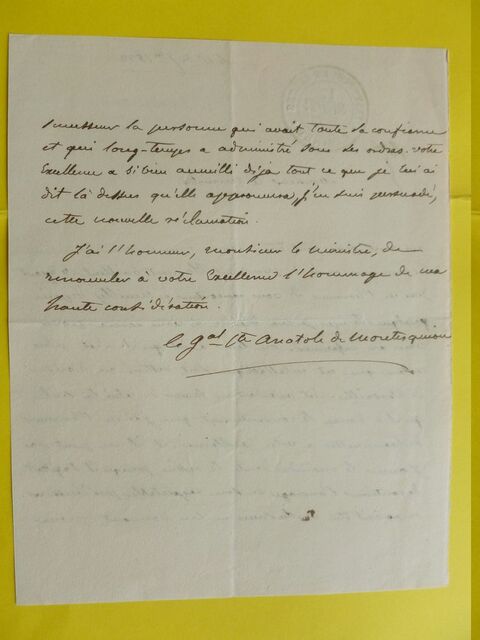 successeur la personne qui avait toute sa confiance
et qui long-temps a administré sous ses ordres. votre
Excellence a si bien accuilli déja tout ce que je lui ai
dit là dessus qu'elle approuvera, j'en suis persuadé,
cette nouvelle réclamation.
J'ai l'honneur, monsieur le Ministre, de
renouveler à votre Excellence l'hommage de ma
haute considération.
le gal Cte Anatole de Montesquiou